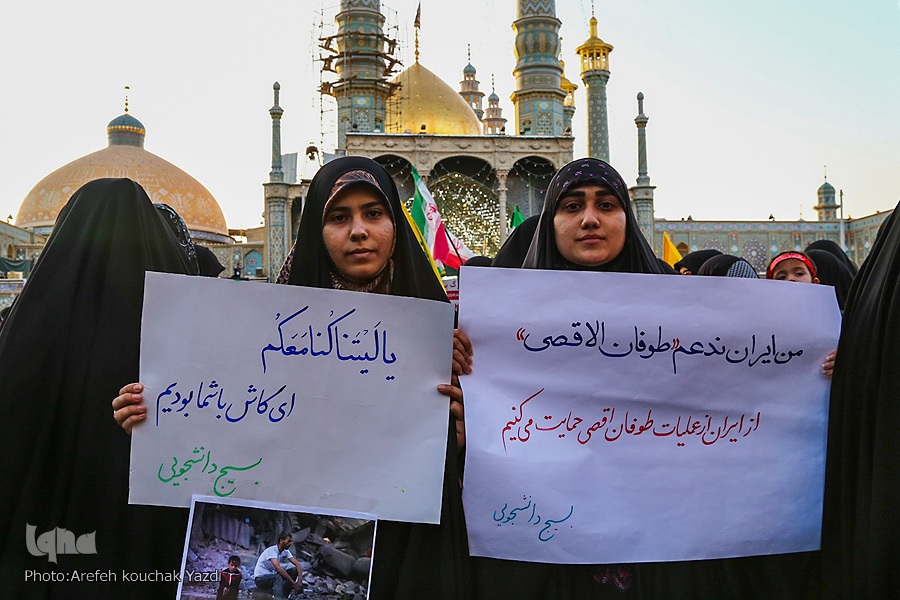 يا لَيْتَنا كُنا مَعَكُم
ای کاش با شما بودیم
بسیج دانشجویی
من ایران ندعم "طوفان الاقصی"
از ایران از عملیات طوفان اقصی حمایت می‌کنیم
بسیج دانشجویی
iqna
Photo:Arefeh kouchak Yazdi